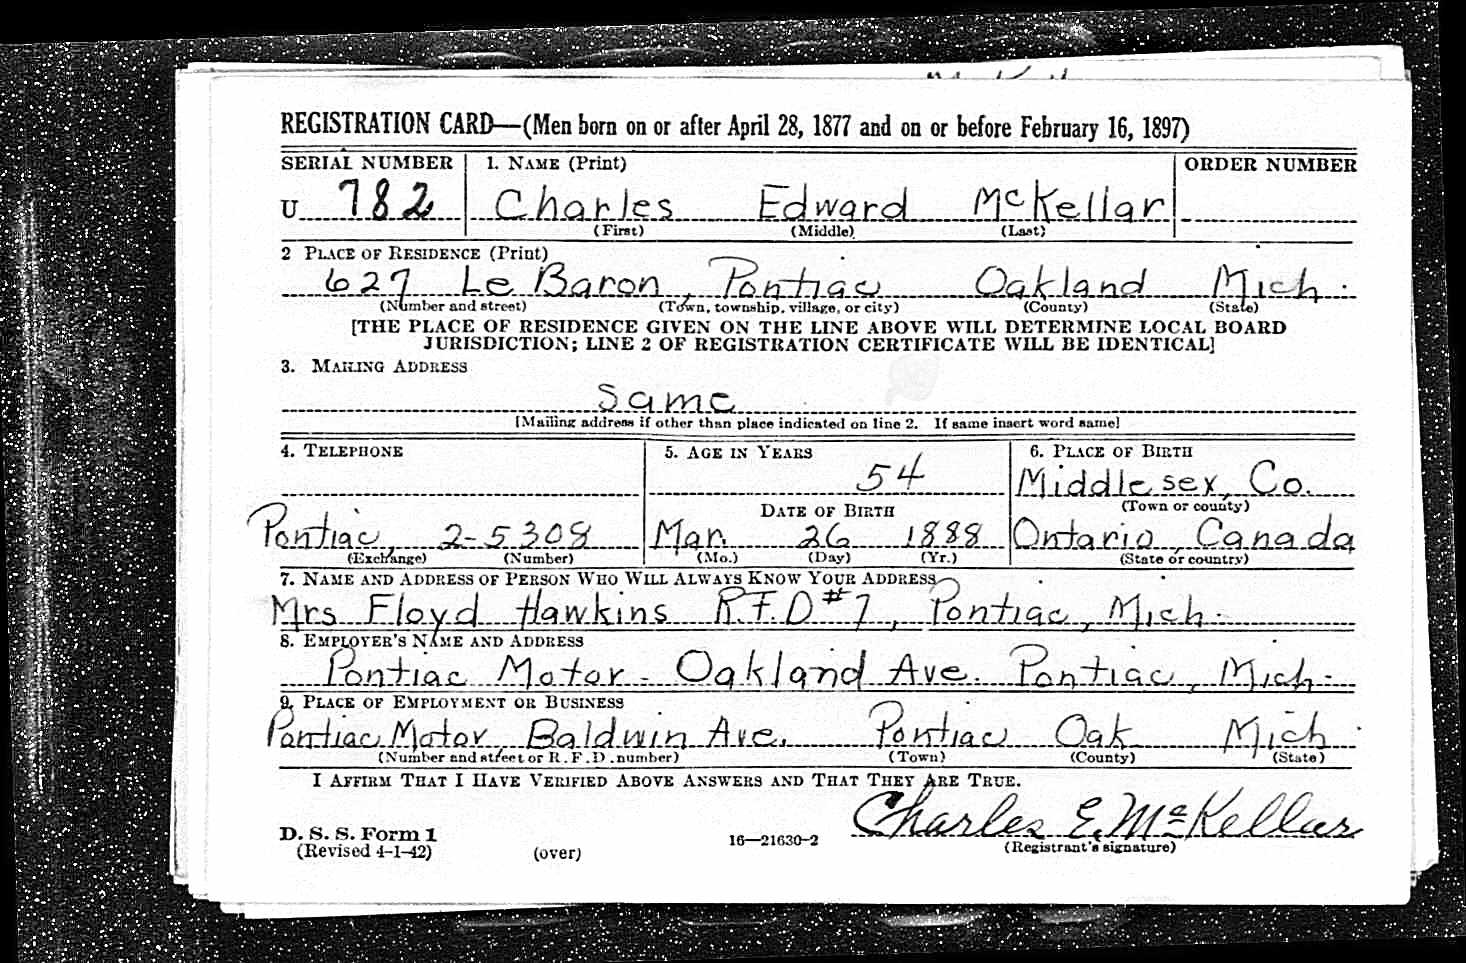 REGISTRATION CARD—(Men born on or after April 28, 1877 and on or before February 16, 1897)
SERIAL NUMBER 1. NAME (Print) ORDER NUMBER
U 782 Charles Edward McKellar
(First) (Middle) (Last)
2 PLACE OF RESIDENCE (Print)
627 Le Baron, Pontiac Oakland Mich.
(Number and street) (Town, township, village, or city) (County) (State)
[THE PLACE OF RESIDENCE GIVEN ON THE LINE ABOVE WILL DETERMINE LOCAL BOARD
JURISDICTION; LINE 2 OF REGISTRATION CERTIFICATE WILL BE IDENTICAL]
3. MAILING ADDRESS
Same
[Mailing address if other than place indicated on line 2. If same insert word same]
4. TELEPHONE 5. AGE IN YEARS 6. PLACE OF BIRTH
54 Middlesex, Co.
DATE OF BIRTH (Town or county)
Pontiac, 2-5308 Mar. 26 1888 Ontario, Canada
(Exchange) (Number) (Mo.) (Day) (Yr.) (State or country)
7. NAME AND ADDRESS OF PERSON WHO WILL ALWAYS KNOW YOUR ADDRESS
Mrs Floyd Hawkins R.F.D #7, Pontiac, Mich.
8. EMPLOYER'S NAME AND ADDRESS
Pontiac Motor - Oakland Ave. Pontiac, Mich.
9. PLACE OF EMPLOYMENT OR BUSINESS
Pontiac Motor, Baldwin Ave. Pontiac Oak Mich
(Number and street or R. F. D. number) (Town) (County) (State)
I AFFIRM THAT I HAVE VERIFIED ABOVE ANSWERS AND THAT THEY ARE TRUE.
Charles E. McKellar
D. S. S. Form 1
(Revised 4-1-42) (over) 16—21630-2 (Registrant's signature)